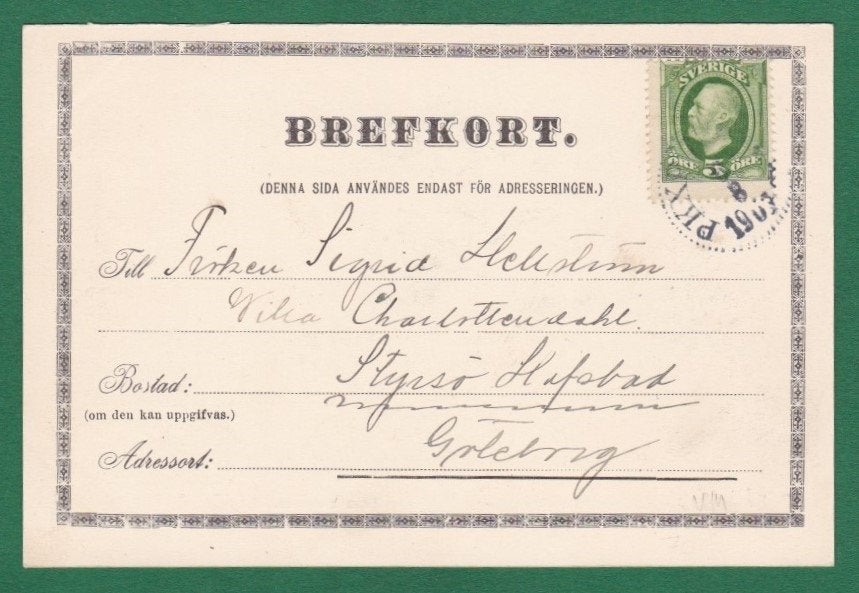 BREFKORT.
(DENNA SIDA ANVÄNDES ENDAST FÖR ADRESSERINGEN.)
SVERIGE
ÖRE 5 ÖRE
PKX
8
190
Till Fröken Sigrid Hellström
Villa Charlottendahl.
Bostad: Styrsö Hafsbad
(om den kan uppgifvas.)
Adressort: Göteborg